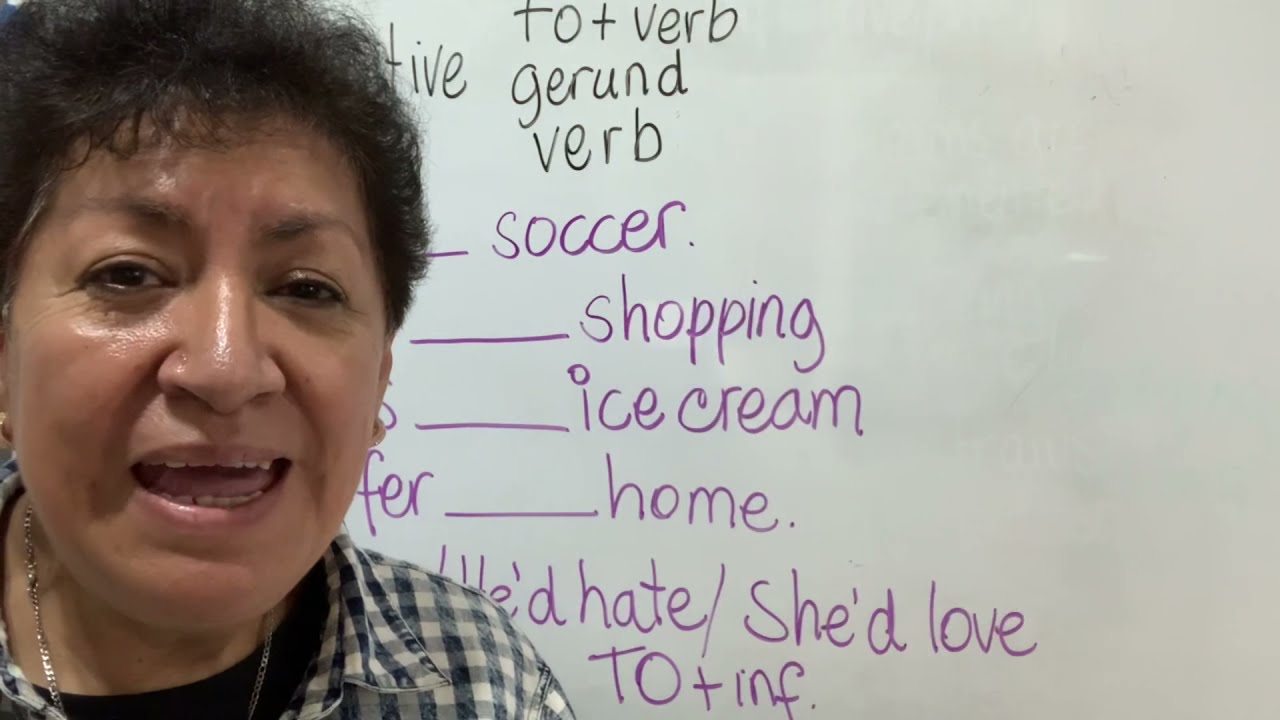 to + verb
tive gerund
verb
__ soccer.
____ shopping
s ____ ice cream
fer ____ home.
He'd hate / She'd love
TO + inf.